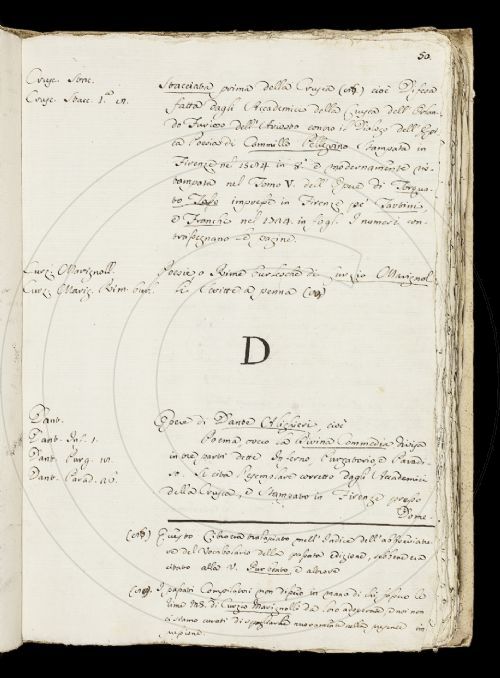 50.
Crusc. Stac.
Crusc. Stacc. 1.a 11.
Stacciata prima della Crusca cioè Difesa
fatta dagli Accademici della Crusca dell' Orlan-
do Furioso dell' Ariosto contro il Dialogo dell' Epi-
ca Poesia di Cammillo Pellegrino stampata in
Firenze nel in 8. e modernamente ri-
stampata nel Tomo V. dell' Opere di Torqua-
to Tasso impresse in Firenze pe' Tartini,
e Franchi nel 1724. in fogl. I numeri con-
trassegnano le pagine.
Curz. Marignoll.
Curz. Marig. Rim. burl.
Poesie, o Rime burlesche di Curzio Marignol-
li scritte a penna
D
Dant.
Dant. Inf. 1.
Dant. Purg. 10.
Dant. Parad.
Opere di Dante Alighieri, cioè
Poema, ovvero la Divina Commedia divisa
in tre parti dette Inferno, Purgatorio, e Paradi-
so. Si cita l'esemplare corretto dagli Accademici
della Crusca, e stampato in Firenze presso
Dome-
Questo Libro era tralasciato nell' Indice dell' abbreviatu-
re del Vocabolario della passata edizione, sebbene era
citato alla V. Burlato, e altrove
I passati Compilatori non dissero in mano di chi fosse il
MS. di Curzio Marignolli da loro adoperato, e noi non
ci siamo curati di nuovamente nella presente im-
pressione.